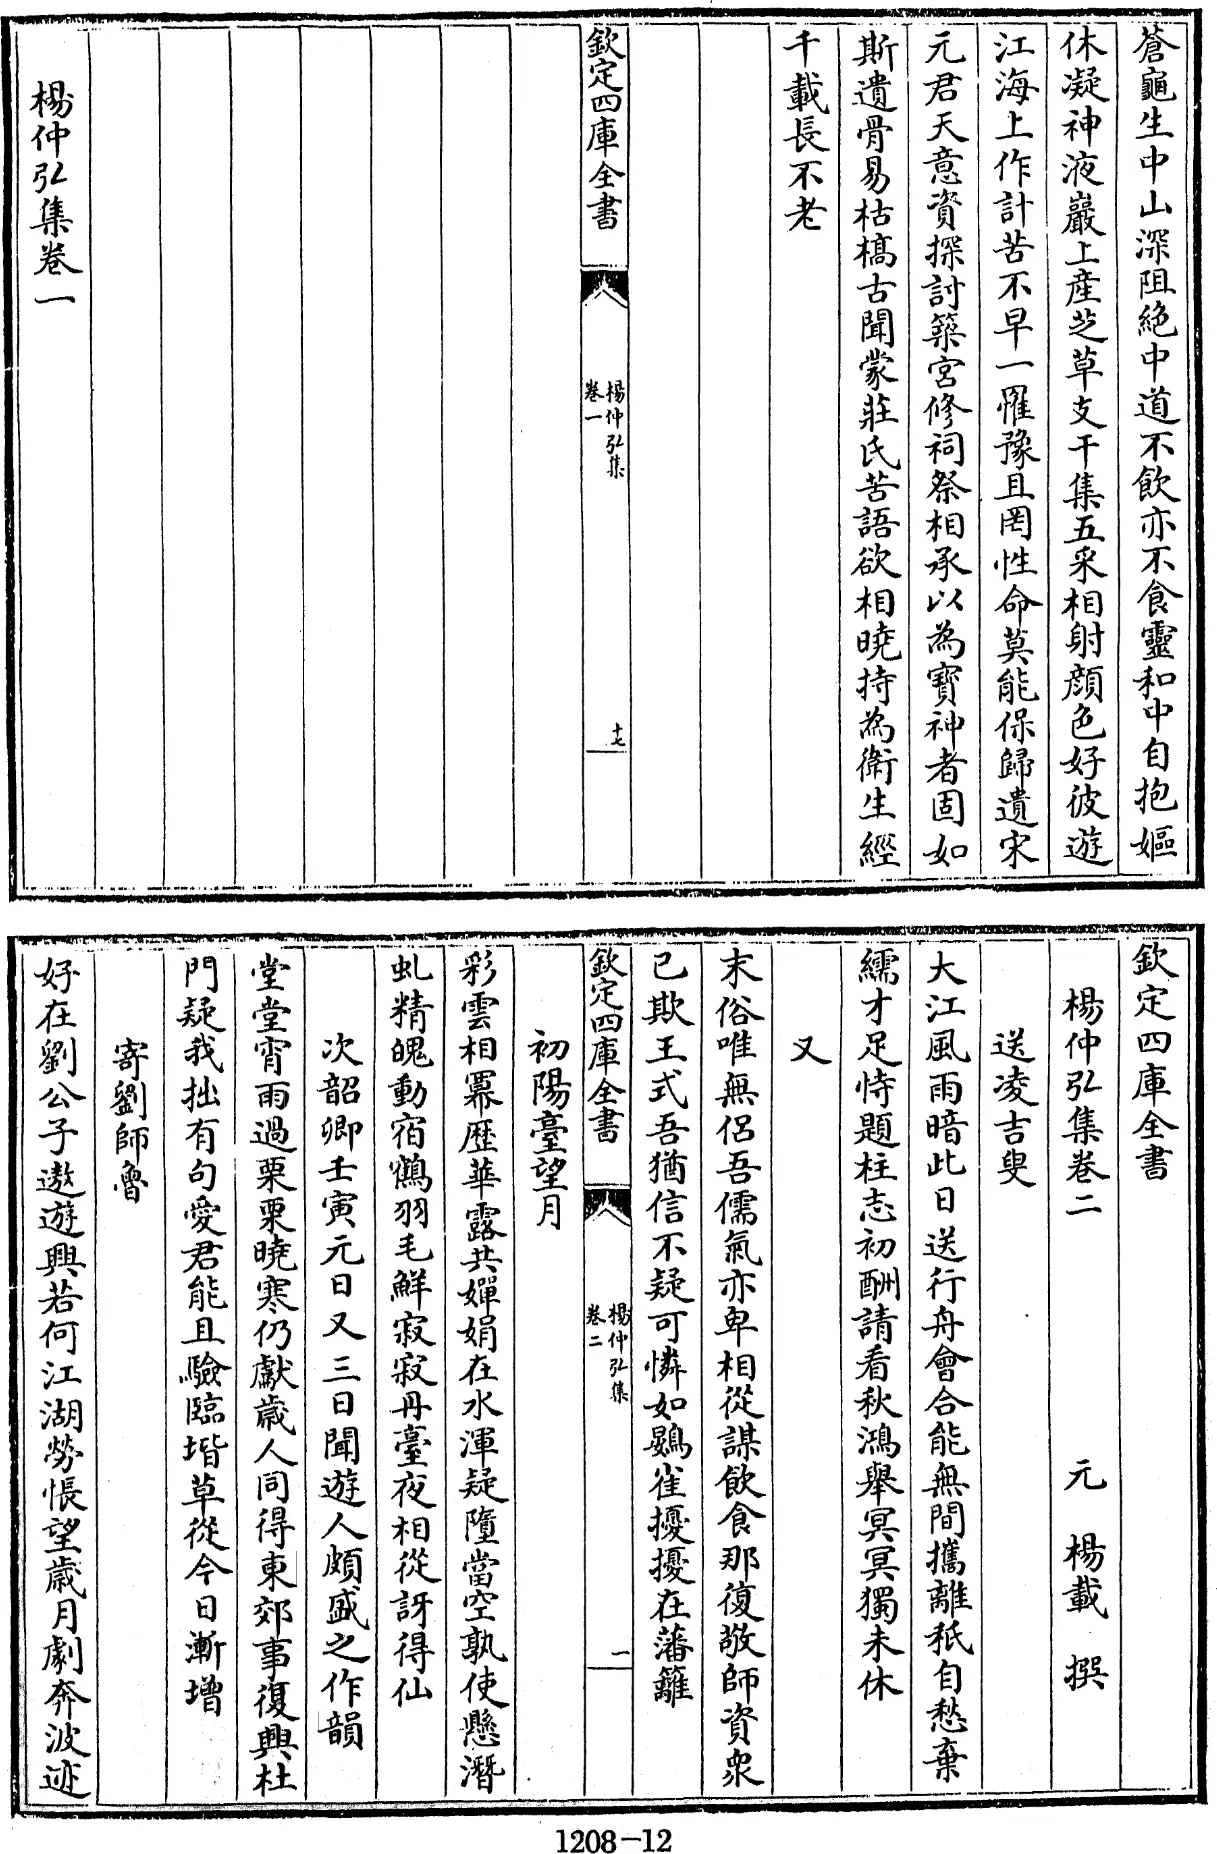 蒼龜生中山深阻絶中道不飲亦不食靈和中自抱嫗
休凝神液巖上産芝草支干集五采相射顔色好彼遊
江海上作計苦不早一罹豫且罔性命莫能保歸遺宋
元君天意資探討築宮修祠祭相承以為寳神者固如
斯遺骨易枯槁古聞蒙莊氏苦語欲相曉持為衛生經
千載長不老
欽定四庫全書
楊仲弘集
卷一
十七
楊仲弘集卷一
欽定四庫全書
楊仲弘集卷二
元 楊載 撰
送凌吉叟
大江風雨暗此日送行舟會合能無間攜離秖自愁棄
繻才足恃題柱志初酬請看秋鴻舉冥冥獨未休
又
末俗唯無侣吾儒氣亦卑相從謀飲食那復敬師資衆
已欺王式吾猶信不疑可憐如鷃雀擾擾在藩籬
欽定四庫全書
楊仲弘集
卷二
一
初陽臺望月
彩雲相羃歴華露共嬋娟在水渾疑墮當空孰使懸潛
虬精魄動宿鶴羽毛鮮寂寂丹臺夜相從訝得仙
次韶卿壬寅元日又三日聞遊人頗盛之作韻
堂堂宵雨過栗栗曉寒仍獻歳人同得東郊事復興杜
門疑我拙有句愛君能且驗臨堦草從今日漸增
寄劉師魯
好在劉公子遨遊興若何江湖勞悵望歳月劇奔波迹
1208-12